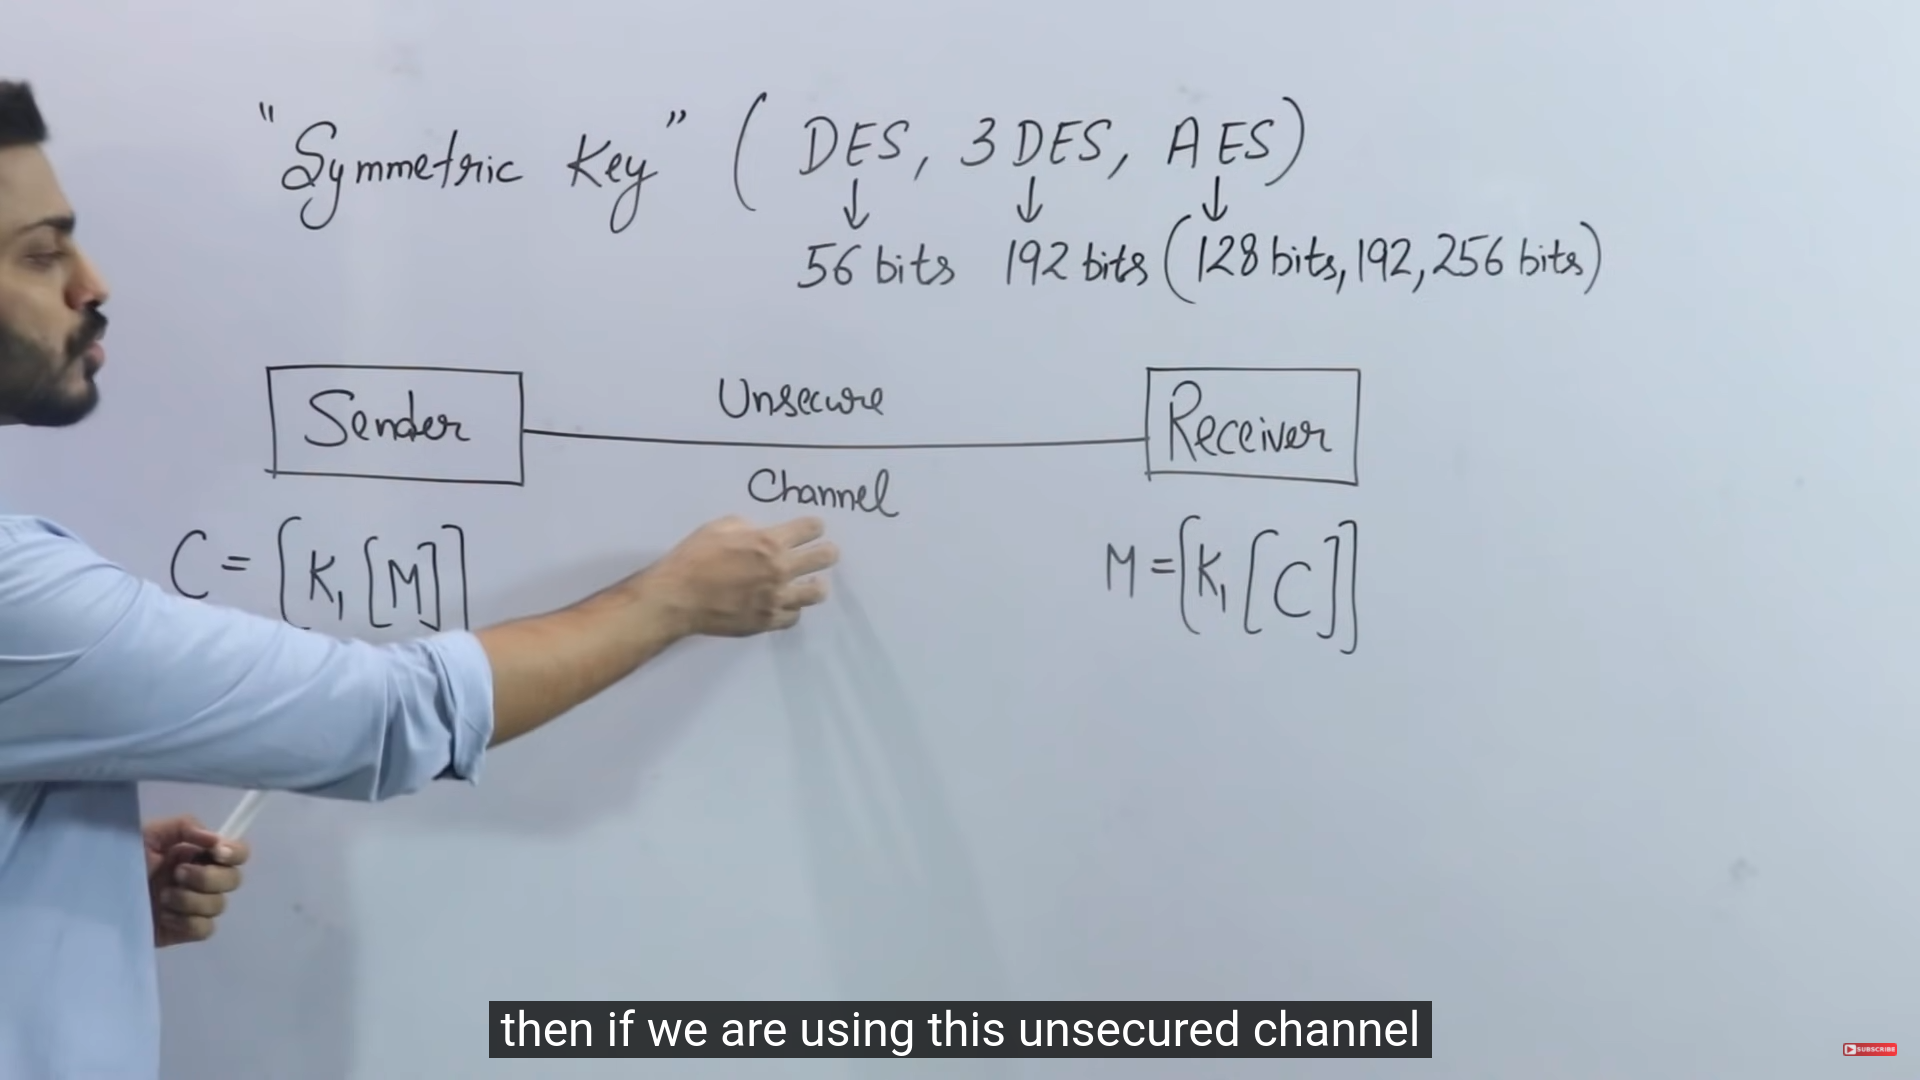 "Symmetric Key" ( DES, 3DES, AES)
↓ ↓ ↓
56 bits 192 bits (128 bits, 192, 256 bits)
Sender Unsecure Receiver
Channel
C = [K₁ [M]] M = [K₁ [C]]
then if we are using this unsecured channel
SUBSCRIBE